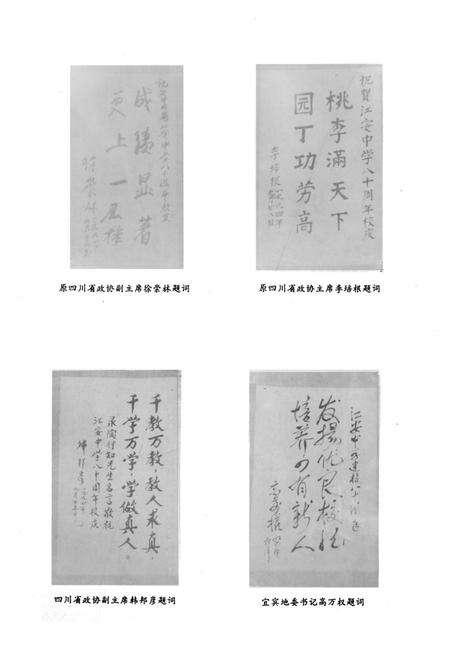 成绩显著
更上一层楼
原四川省政协副主席徐崇林题词
祝贺江安中学八十周年校庆
桃李满天下
园丁功劳高
李培根
原四川省政协主席李培根题词
千教万教,教人求真,
千学万学,学做真人。
录陶行知先生名言敬祝
江安中学八十周年校庆
韩邦彦
四川省政协副主席韩邦彦题词
发揚优良校风
培养四有新人
高万权
宜宾地委书记高万权题词